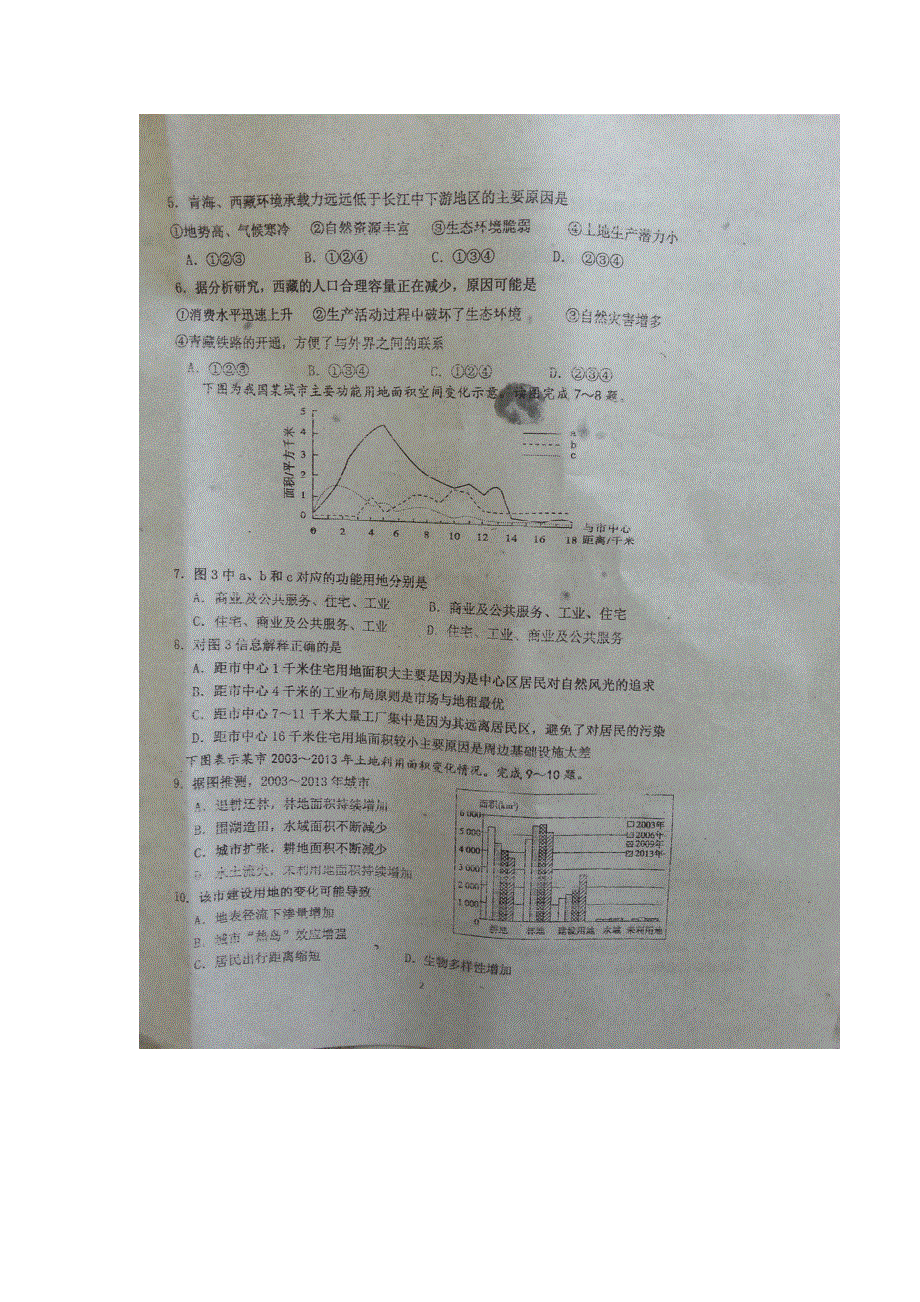 5. 青海、西藏环境承载力远远低于长江中下游地区的主要原因是
①地势高、气候寒冷 ②自然资源丰富 ③生态环境脆弱 ④土地生产潜力小
A. ①②③ B. ①②④ C. ①③④ D. ②③④
6. 据分析研究，西藏的人口合理容量正在减少，原因可能是
①消费水平迅速上升 ②生产活动过程中破坏了生态环境 ③自然灾害增多
④青藏铁路的开通，方便了与外界之间的联系
A. ①②③ B. ①③④ C. ①②④ D. ②③④
下图为我国某城市主要功能用地面积空间变化示意，读图完成7～8题。
面积/平方千米
5
4
3
2
1
0
a
b
c
0 2 4 6 8 10 12 14 16 18
与市中心
距离/千米
7. 图3中a、b和c对应的功能用地分别是
A. 商业及公共服务、住宅、工业 B. 商业及公共服务、工业、住宅
C. 住宅、商业及公共服务、工业 D. 住宅、工业、商业及公共服务
8. 对图3信息解释正确的是
A. 距市中心1千米住宅用地面积大主要是因为是中心区居民对自然风光的追求
B. 距市中心4千米的工业布局原则是市场与地租最优
C. 距市中心7～11千米大量工厂集中是因为其远离居民区，避免了对居民的污染
D. 距市中心16千米住宅用地面积较小主要原因是周边基础设施太差
下图表示某市2003～2013年土地利用面积变化情况。完成9～10题。
9. 据图推测，2003～2013年城市
A. 退耕还林，林地面积持续增加
B. 围湖造田，水域面积不断减少
C. 城市扩张，耕地面积不断减少
D. 水土流失，未利用地面积持续增加
面积(km²)
6 000
5 000
4 000
3 000
2 000
1 000
0
2003年
2006年
2009年
2013年
耕地 林地 建设用地 水域 未利用地
10. 该市建设用地的变化可能导致
A. 地表径流下渗量增加
B. 城市“热岛”效应增强
C. 居民出行距离缩短 D. 生物多样性增加
2